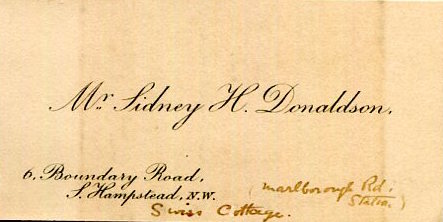 Mr Sidney H. Donaldson.
6, Boundary Road,
S. Hampstead, N.W.
(Marlborough Rd:
Station)
Swiss Cottage.